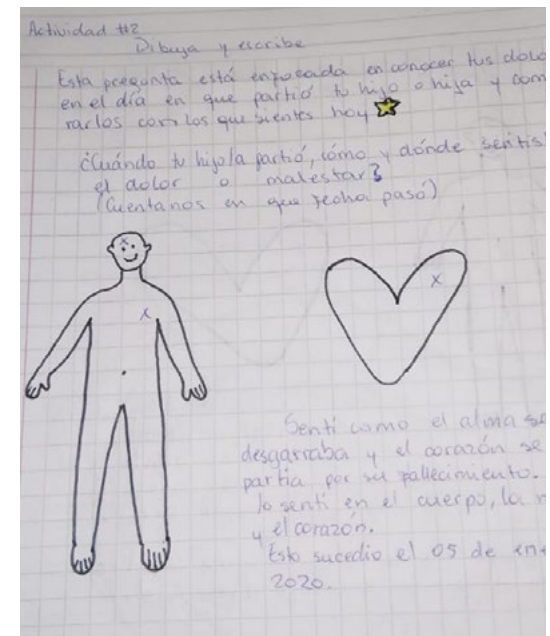 Actividad #2
Dibuja y escribe
Esta pregunta está enfocada en conocer tus dolo
en el día en que partió tu hijo o hija y com
rarlos con los que sientes hoy
¿Cuándo tu hijo/a partió, cómo y dónde sentis
el dolor o malestar?
(Cuentanos en que fecha pasó)
x
x
x
Sentí como el alma se
desgarraba y el corazón se
partia por su fallecimiento.
lo sentí en el cuerpo, la m
y el corazón.
Esto sucedio el 05 de ene
2020.